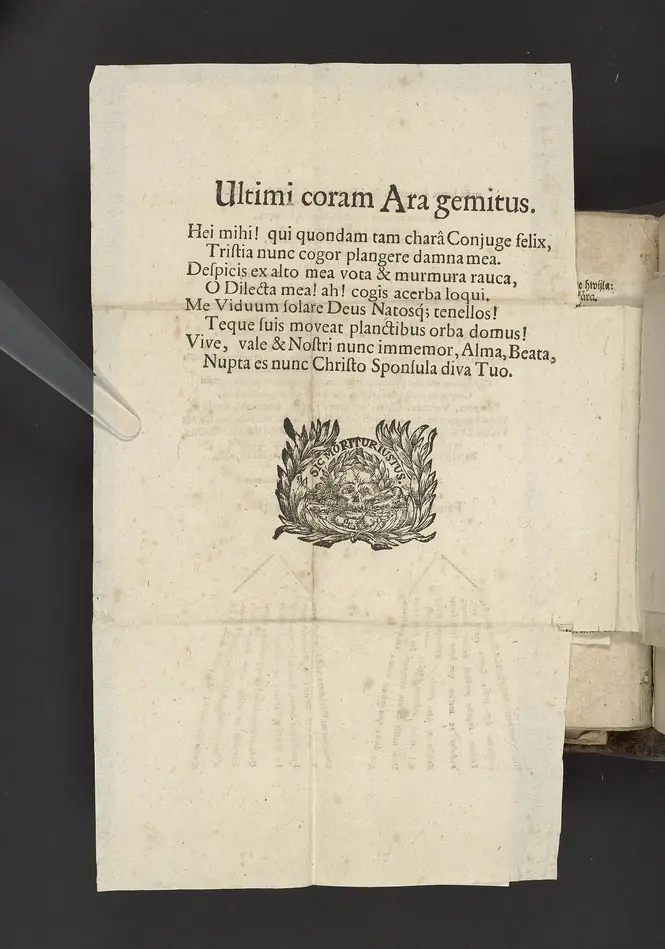 Ultimi coram Ara gemitus.
Hei mihi! qui quondam tam charâ Conjuge felix,
Triſtia nunc cogor plangere damna mea.
Deſpicis ex alto mea vota & murmura rauca,
O Dilecta mea! ah! cogis acerba loqui.
Me Viduum ſolare Deus Natosq; tenellos!
Teque ſuis moveat planctibus orba domus!
Vive, vale & Noſtri nunc immemor, Alma, Beata,
Nupta es nunc Chriſto Sponſula diva Tuo.
SIC MORITUR IUSTUS.